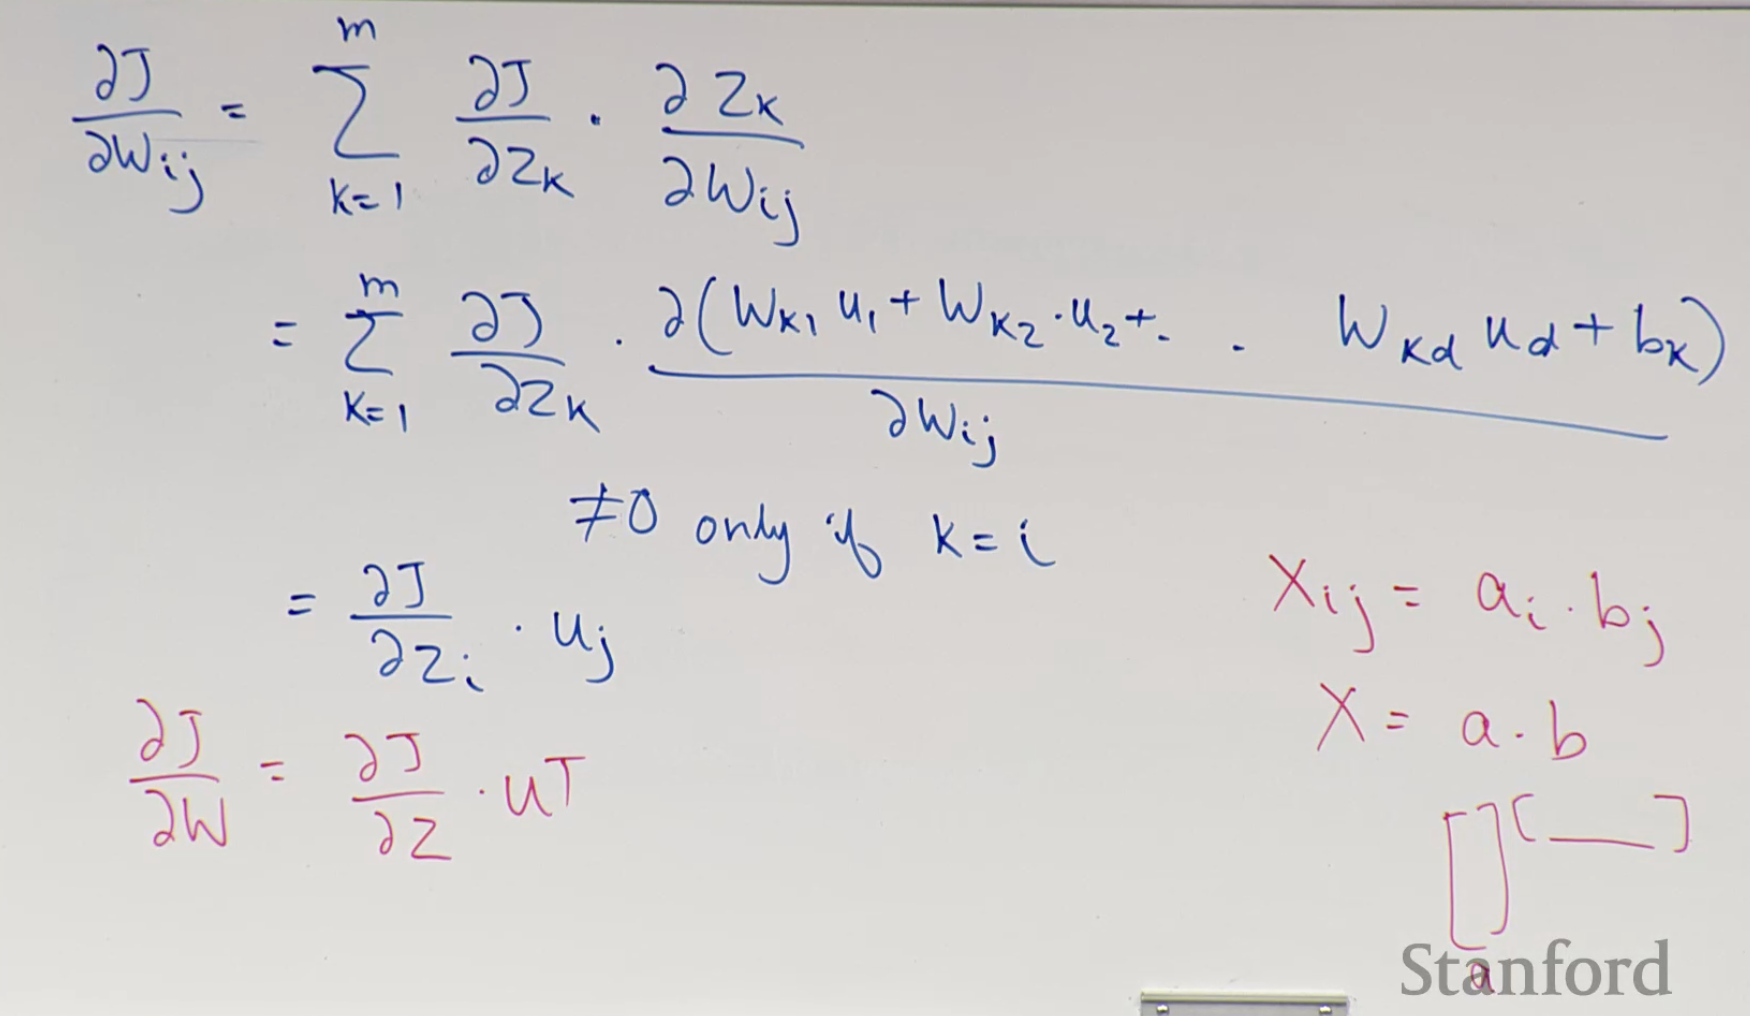 ∂J/∂W_ij = Σ_{k=1}^{m} ∂J/∂Z_k · ∂Z_k/∂W_ij
= Σ_{k=1}^{m} ∂J/∂Z_k · ∂(W_k1 u_1 + W_k2 · u_2 + . . W_kd u_d + b_k)/∂W_ij
≠0 only if k = i
= ∂J/∂Z_i · u_j
∂J/∂W = ∂J/∂Z · u^T
X_ij = a_i · b_j
X = a · b
[ ] [ — ]
a
Stanford